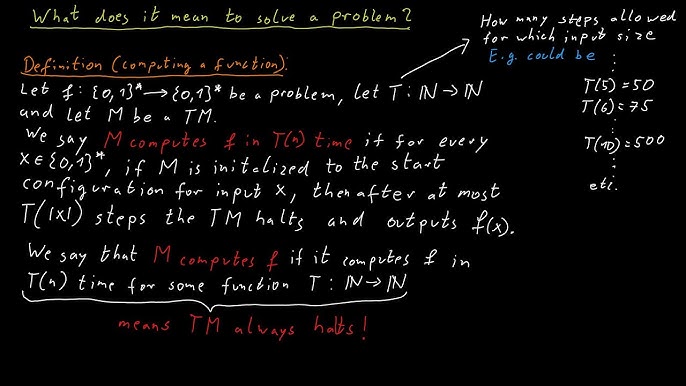 What does it mean to solve a problem?
How many steps allowed
for which input size
E.g. could be
⋮
T(5)=50
T(6)=75
⋮
T(10)=500
⋮
etc.
Definition (computing a function):
Let f: {0,1}* → {0,1}* be a problem, let T: ℕ → ℕ
and let M be a TM.
We say M computes f in T(n) time if for every
x ∈ {0,1}*, if M is initalized to the start
configuration for input x, then after at most
T(|x|) steps the TM halts and outputs f(x).
We say that M computes f if it computes f in
T(n) time for some function T: ℕ → ℕ
means TM always halts!